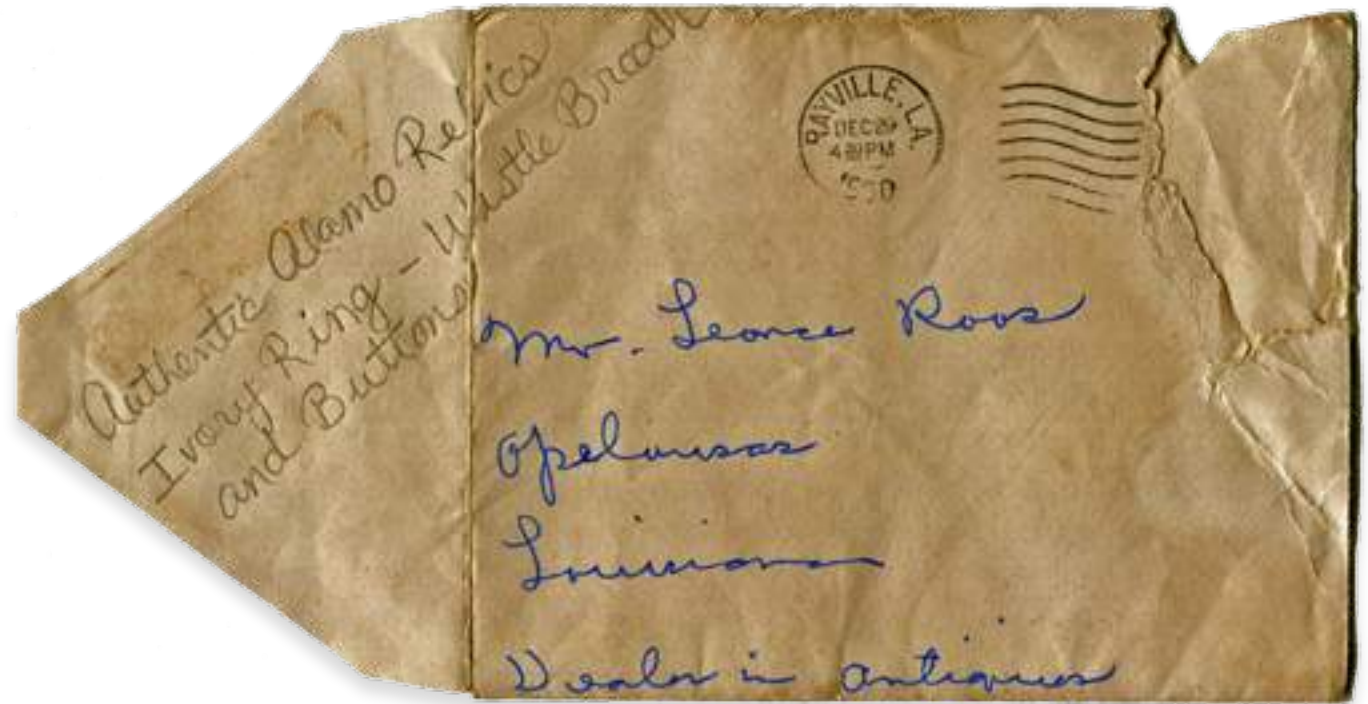 Authentic Alamo Relics
Ivory Ring - Whistle Brooch
and Buttons
RAYVILLE, LA.
DEC 29
4 PM
Mr. Leonce Roos
Opelousas
Louisiana
Dealer in Antiques